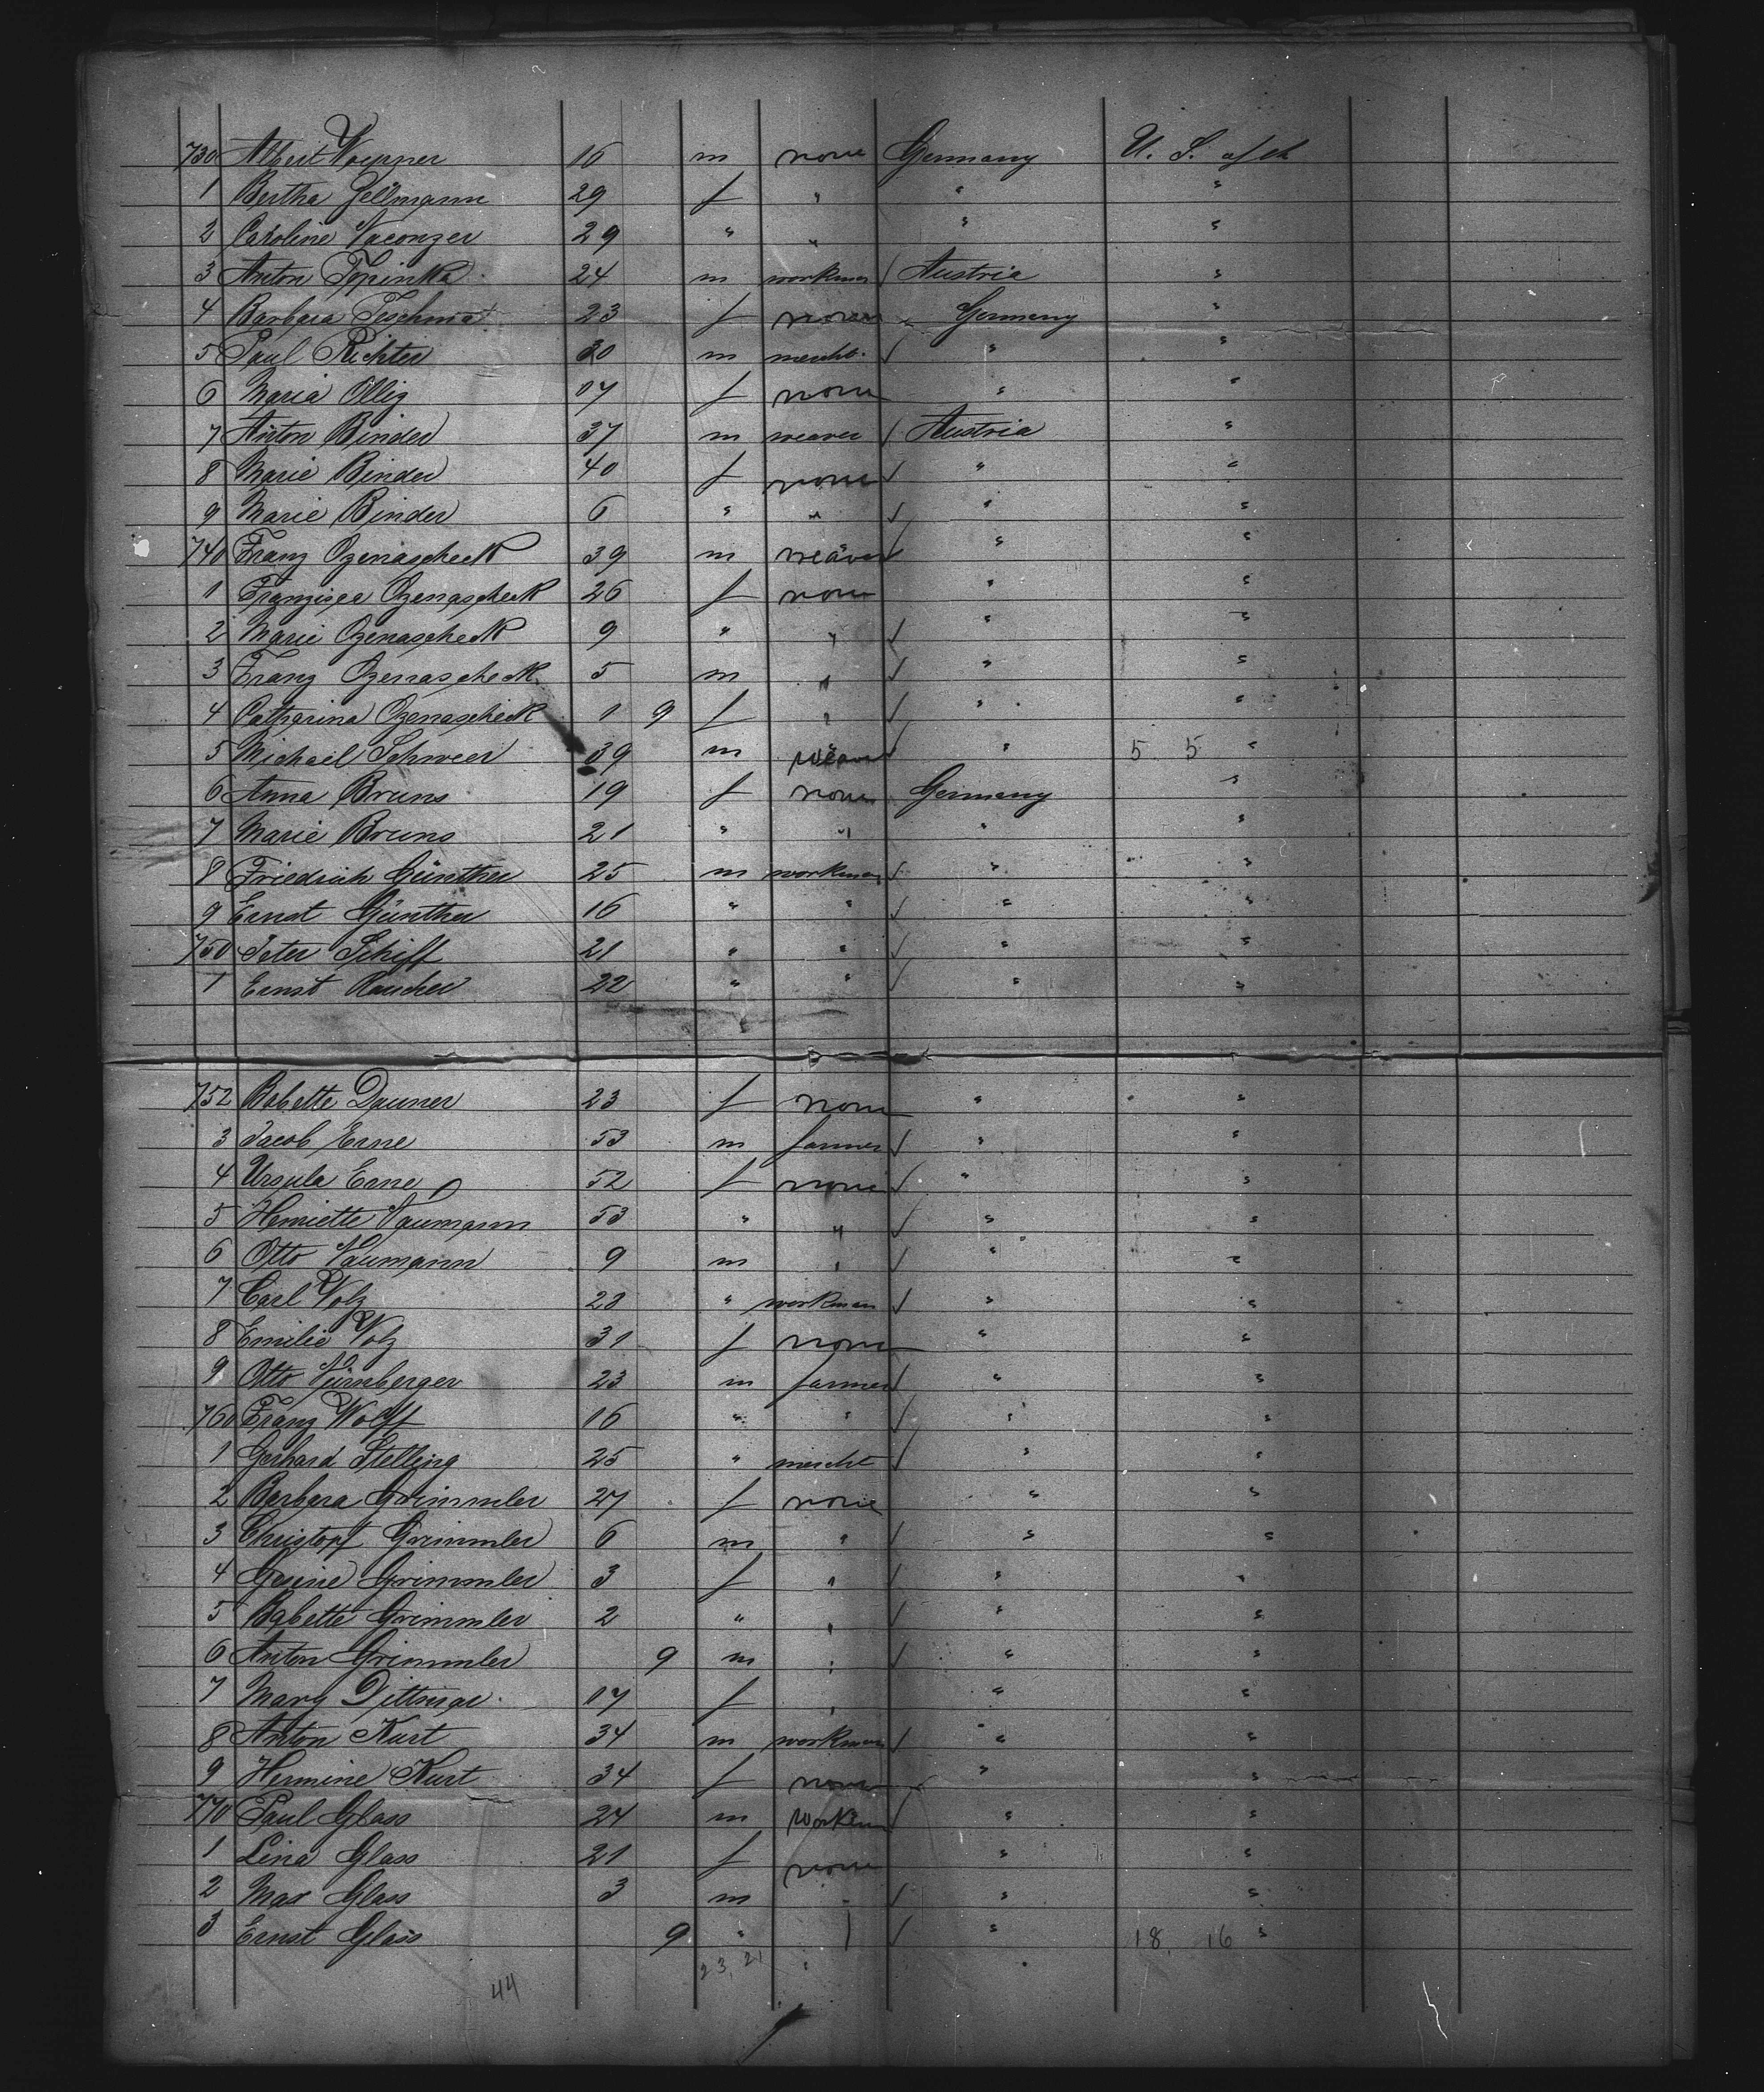 730 Albert Woepner 16 m none Germany U. S. of A
1 Bertha Hellmann 29 f " " "
2 Caroline 29 " " " "
3 Anton Topinka 24 m workman / Austria "
4 Barbara 23 f none Germany "
5 Paul Richter 30 m mercht. / " "
6 Maria Ollig 17 f none " "
7 Anton Binder 37 m weaver / Austria "
8 Marie Binder 40 f none / " "
9 Marie Binder 6 " " / " "
740 Franz Ozenascheck 39 m weaver / " "
1 Franzisca Ozenascheck 26 f none " "
2 Marie Ozenascheck 9 " " / " "
3 Franz Ozenascheck 5 m " / " "
4 Catharina Ozenascheck 1 9 f " / " "
5 Michael Schweer 39 m weaver / " 5 5 "
6 Anna Bruns 19 f none Germany "
7 Marie Bruns 21 " " " "
8 Friedrich Günther 25 m workman / " "
9 Ernst Günther 16 " " / " "
750 Peter Schiff 21 " " / " "
1 Ernst Raucher 22 " " / " "
752 Babette Dauner 23 f none " "
3 Jacob Erne 53 m farmer / " "
4 Ursula Erne 52 f none / " "
5 Henriette Naumann 53 " " / " "
6 Otto Naumann 9 m " / " "
7 Carl Volz 23 " workman / " "
8 Emilie Volz 31 f none " "
9 Otto Nürnberger 23 m farmer / " "
760 Franz Wolff 16 " " / " "
1 Gerhard Stelling 25 " mercht / " "
2 Barbara Grimmler 27 f none " "
3 Christopf Grimmler 6 m " / " "
4 Gesine Grimmler 3 f " / " "
5 Babette Grimmler 2 " " / " "
6 Anton Grimmler 9 m " / " "
7 Mary Dittmar 17 f " " "
8 Anton Kurt 34 m workman / " "
9 Hermine Kurt 34 f none " "
770 Paul Glass 24 m workm / " "
1 Lina Glass 21 f none " "
2 Max Glass 3 m " / " "
3 Ernst Glass 9 " / " 18. 16 "
23, 21
44